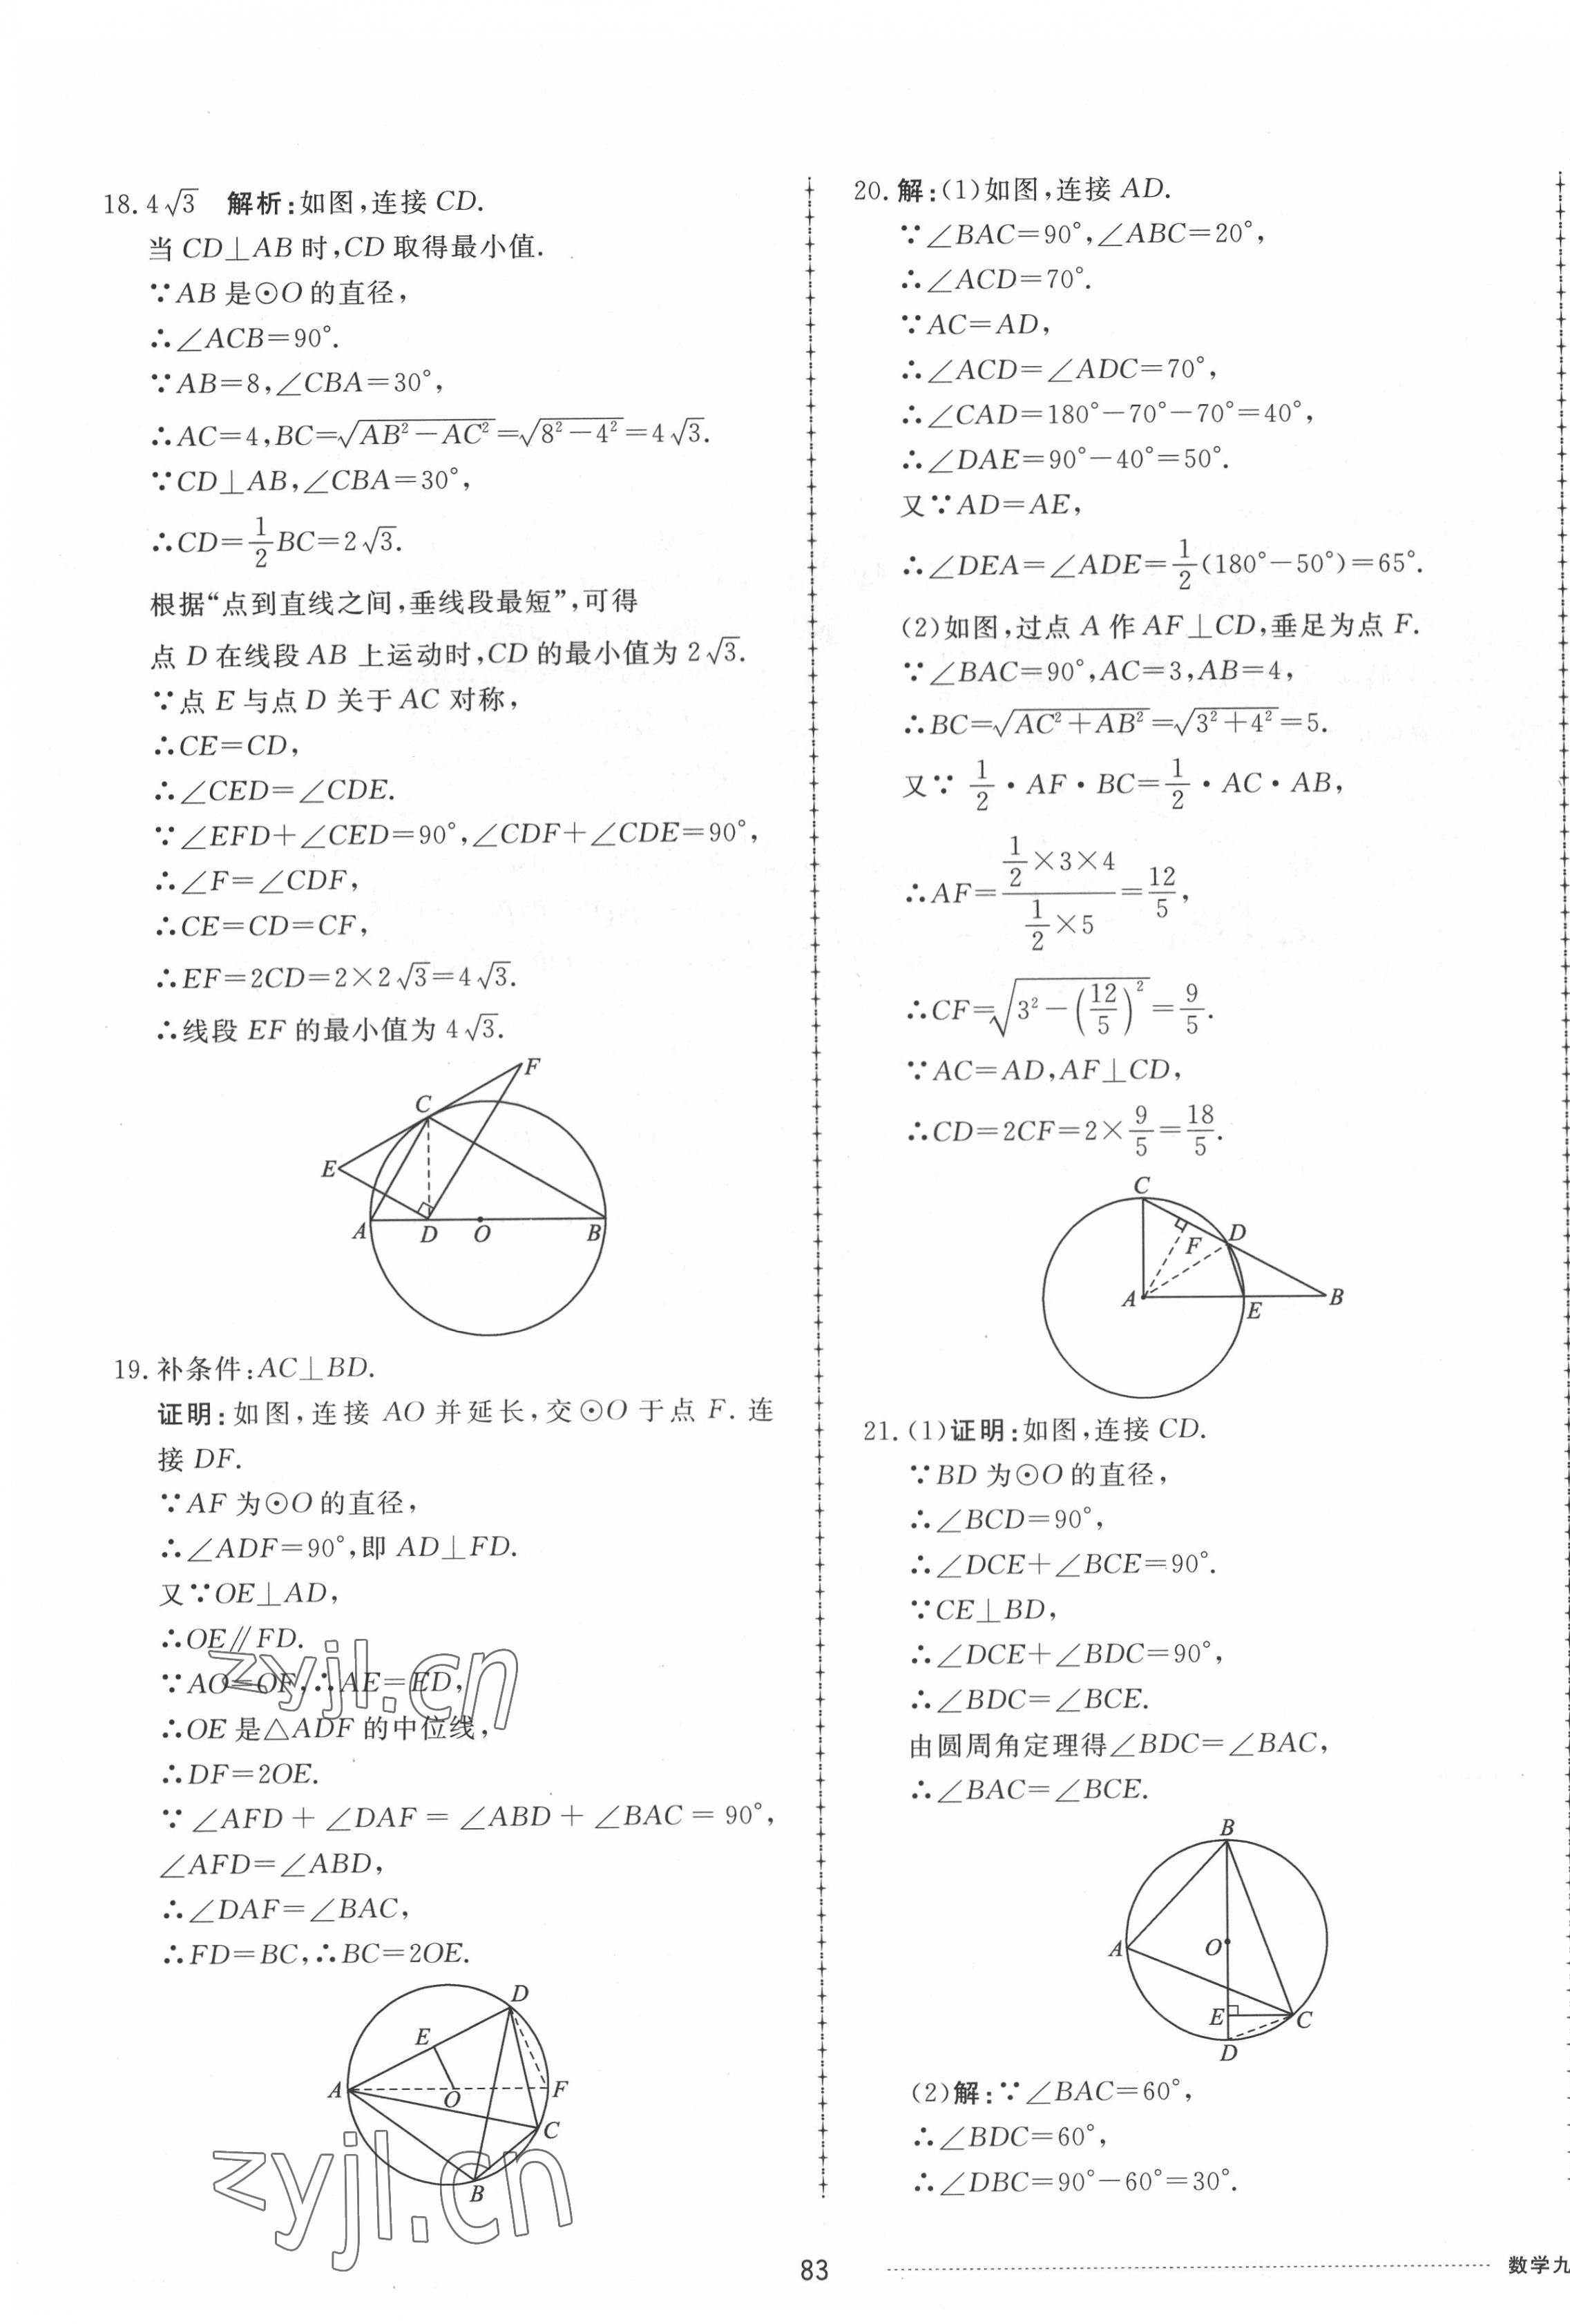 18. 4√3　解析:如图,连接 CD.
当 CD⊥AB 时,CD 取得最小值.
∵AB 是⊙O 的直径,
∴∠ACB=90°.
∵AB=8,∠CBA=30°,
∴AC=4,BC=√(AB²-AC²)=√(8²-4²)=4√3.
∵CD⊥AB,∠CBA=30°,
∴CD=1/2 BC=2√3.
根据“点到直线之间,垂线段最短”,可得
点 D 在线段 AB 上运动时,CD 的最小值为 2√3.
∵点 E 与点 D 关于 AC 对称,
∴CE=CD,
∴∠CED=∠CDE.
∵∠EFD+∠CED=90°,∠CDF+∠CDE=90°,
∴∠F=∠CDF,
∴CE=CD=CF,
∴EF=2CD=2×2√3=4√3.
∴线段 EF 的最小值为 4√3.
F
C
E
A
D
O
B
19. 补条件:AC⊥BD.
证明:如图,连接 AO 并延长,交⊙O 于点 F. 连
接 DF.
∵AF 为⊙O 的直径,
∴∠ADF=90°,即 AD⊥FD.
又∵OE⊥AD,
∴OE∥FD.
∵AO=OF,∴AE=ED,
∴OE 是△ADF 的中位线,
∴DF=2OE.
∵∠AFD+∠DAF=∠ABD+∠BAC=90°,
∠AFD=∠ABD,
∴∠DAF=∠BAC,
∴FD=BC,∴BC=2OE.
zyjl.cn
D
E
A
O
F
C
B
zyjl.cn
20. 解:(1)如图,连接 AD.
∵∠BAC=90°,∠ABC=20°,
∴∠ACD=70°.
∵AC=AD,
∴∠ACD=∠ADC=70°,
∴∠CAD=180°-70°-70°=40°,
∴∠DAE=90°-40°=50°.
又∵AD=AE,
∴∠DEA=∠ADE=1/2(180°-50°)=65°.
(2)如图,过点 A 作 AF⊥CD,垂足为点 F.
∵∠BAC=90°,AC=3,AB=4,
∴BC=√(AC²+AB²)=√(3²+4²)=5.
又∵ 1/2·AF·BC=1/2·AC·AB,
∴AF=(1/2×3×4)/(1/2×5)=12/5,
∴CF=√(3²-(12/5)²)=9/5.
∵AC=AD,AF⊥CD,
∴CD=2CF=2×9/5=18/5.
C
D
F
A
E
B
21. (1)证明:如图,连接 CD.
∵BD 为⊙O 的直径,
∴∠BCD=90°,
∴∠DCE+∠BCE=90°.
∵CE⊥BD,
∴∠DCE+∠BDC=90°,
∴∠BDC=∠BCE.
由圆周角定理得∠BDC=∠BAC,
∴∠BAC=∠BCE.
B
A
O
E
C
D
(2)解:∵∠BAC=60°,
∴∠BDC=60°,
∴∠DBC=90°-60°=30°.
83
数学九